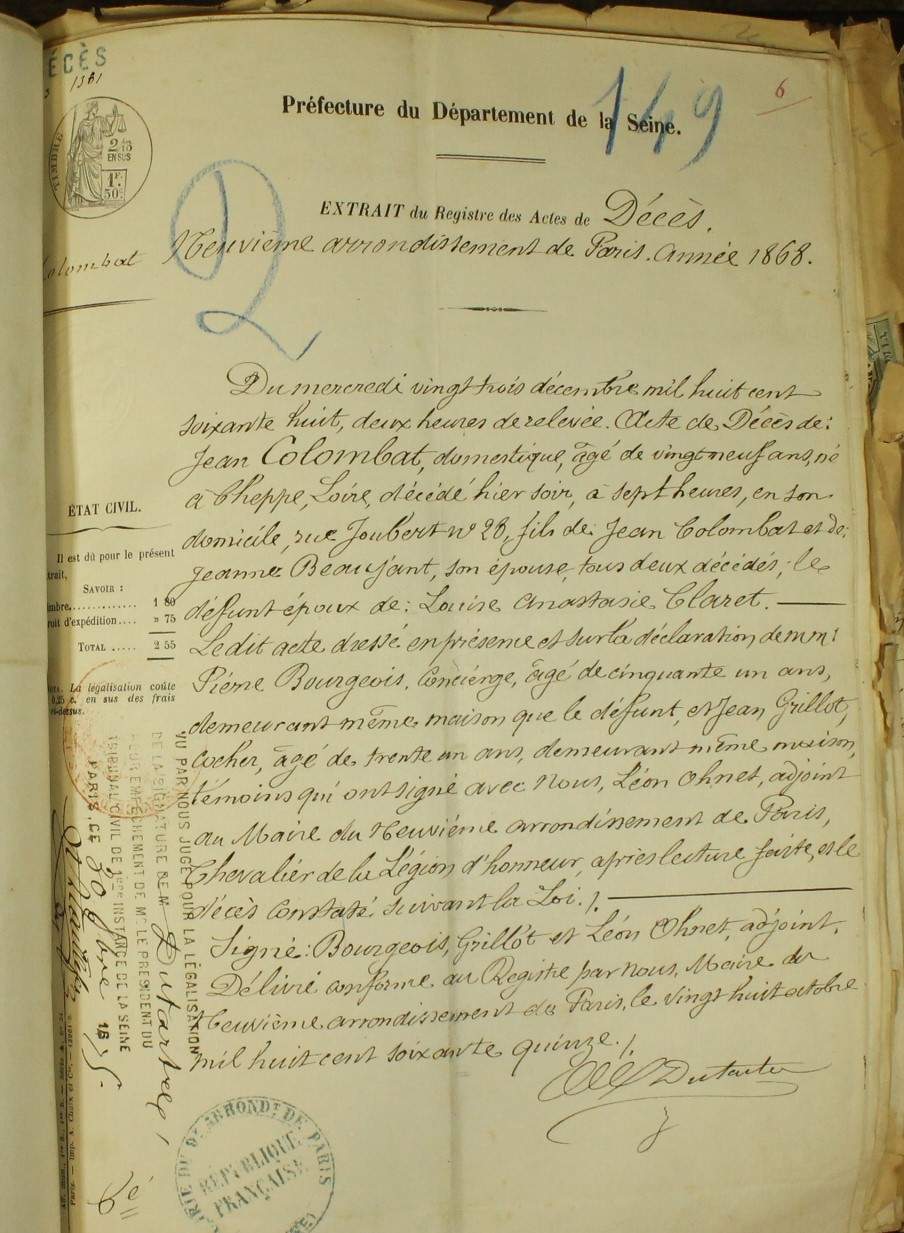 ÉCÈS
1361
149
6
Préfecture du Département de la Seine.
TIMBRE
2/10
EN SUS
1F.
50c.
2
EXTRAIT du Registre des Actes de Décès.
Colombat
Neuvième arrondissement de Paris. Année 1868.
Du mercredi vingt trois décembre mil huit cent
soixante huit, deux heures de relevée. Acte de Décès de:
Jean Colombat, domestique, âgé de vingt neuf ans, né
à Cheppe, Loire, décédé hier soir, à sept heures, en son
domicile, rue Joubert No 28, fils de Jean Colombat et de
Jeanne Beaujant, son épouse, tous deux décédés; le
défunt époux de: Louise Anastasie Claret.
Le dit acte dressé en présence et sur la déclaration de mm:
Pierre Bourgeois, Concierge, âgé de cinquante un ans,
demeurant même maison que le défunt, et Jean Grillot,
Cocher, âgé de trente un ans, demeurant même maison,
témoins qui ont signé avec Nous, Léon Ohnet, adjoint
au Maire du Neuvième arrondissement de Paris,
Chevalier de la Légion d'honneur, après lecture faite, et le
décès constaté suivant la Loi ./.
Signé: Bourgeois, Grillot et Léon Ohnet, adjoint.
Délivré conforme au Registre par nous, Maire du
Neuvième arrondissement de Paris, le vingt huit octobre
mil huit cent soixante quinze ./.
Dutartre
ÉTAT CIVIL.
Il est dû pour le présent
extrait,
SAVOIR :
Timbre............. 1 80
Droit d'expédition.... » 75
TOTAL ..... 2 55
NOTA. La légalisation coûte
0,25 c. en sus des frais
ci-dessus.
VU PAR NOUS JUGE POUR LA LÉGALISATION
DE LA SIGNATURE DE M Dutartre
POUR EMPÊCHEMENT DE Mr LE PRÉSIDENT DU
TRIBUNAL CIVIL DE 1ère INSTANCE DE LA SEINE
PARIS, CE 30 8bre 1875.
Paris. — Imp. A. Chaix et Cie
MAIRIE DU 9e ARRONDt DE PARIS
RÉPUBLIQUE
FRANÇAISE
(SEINE)